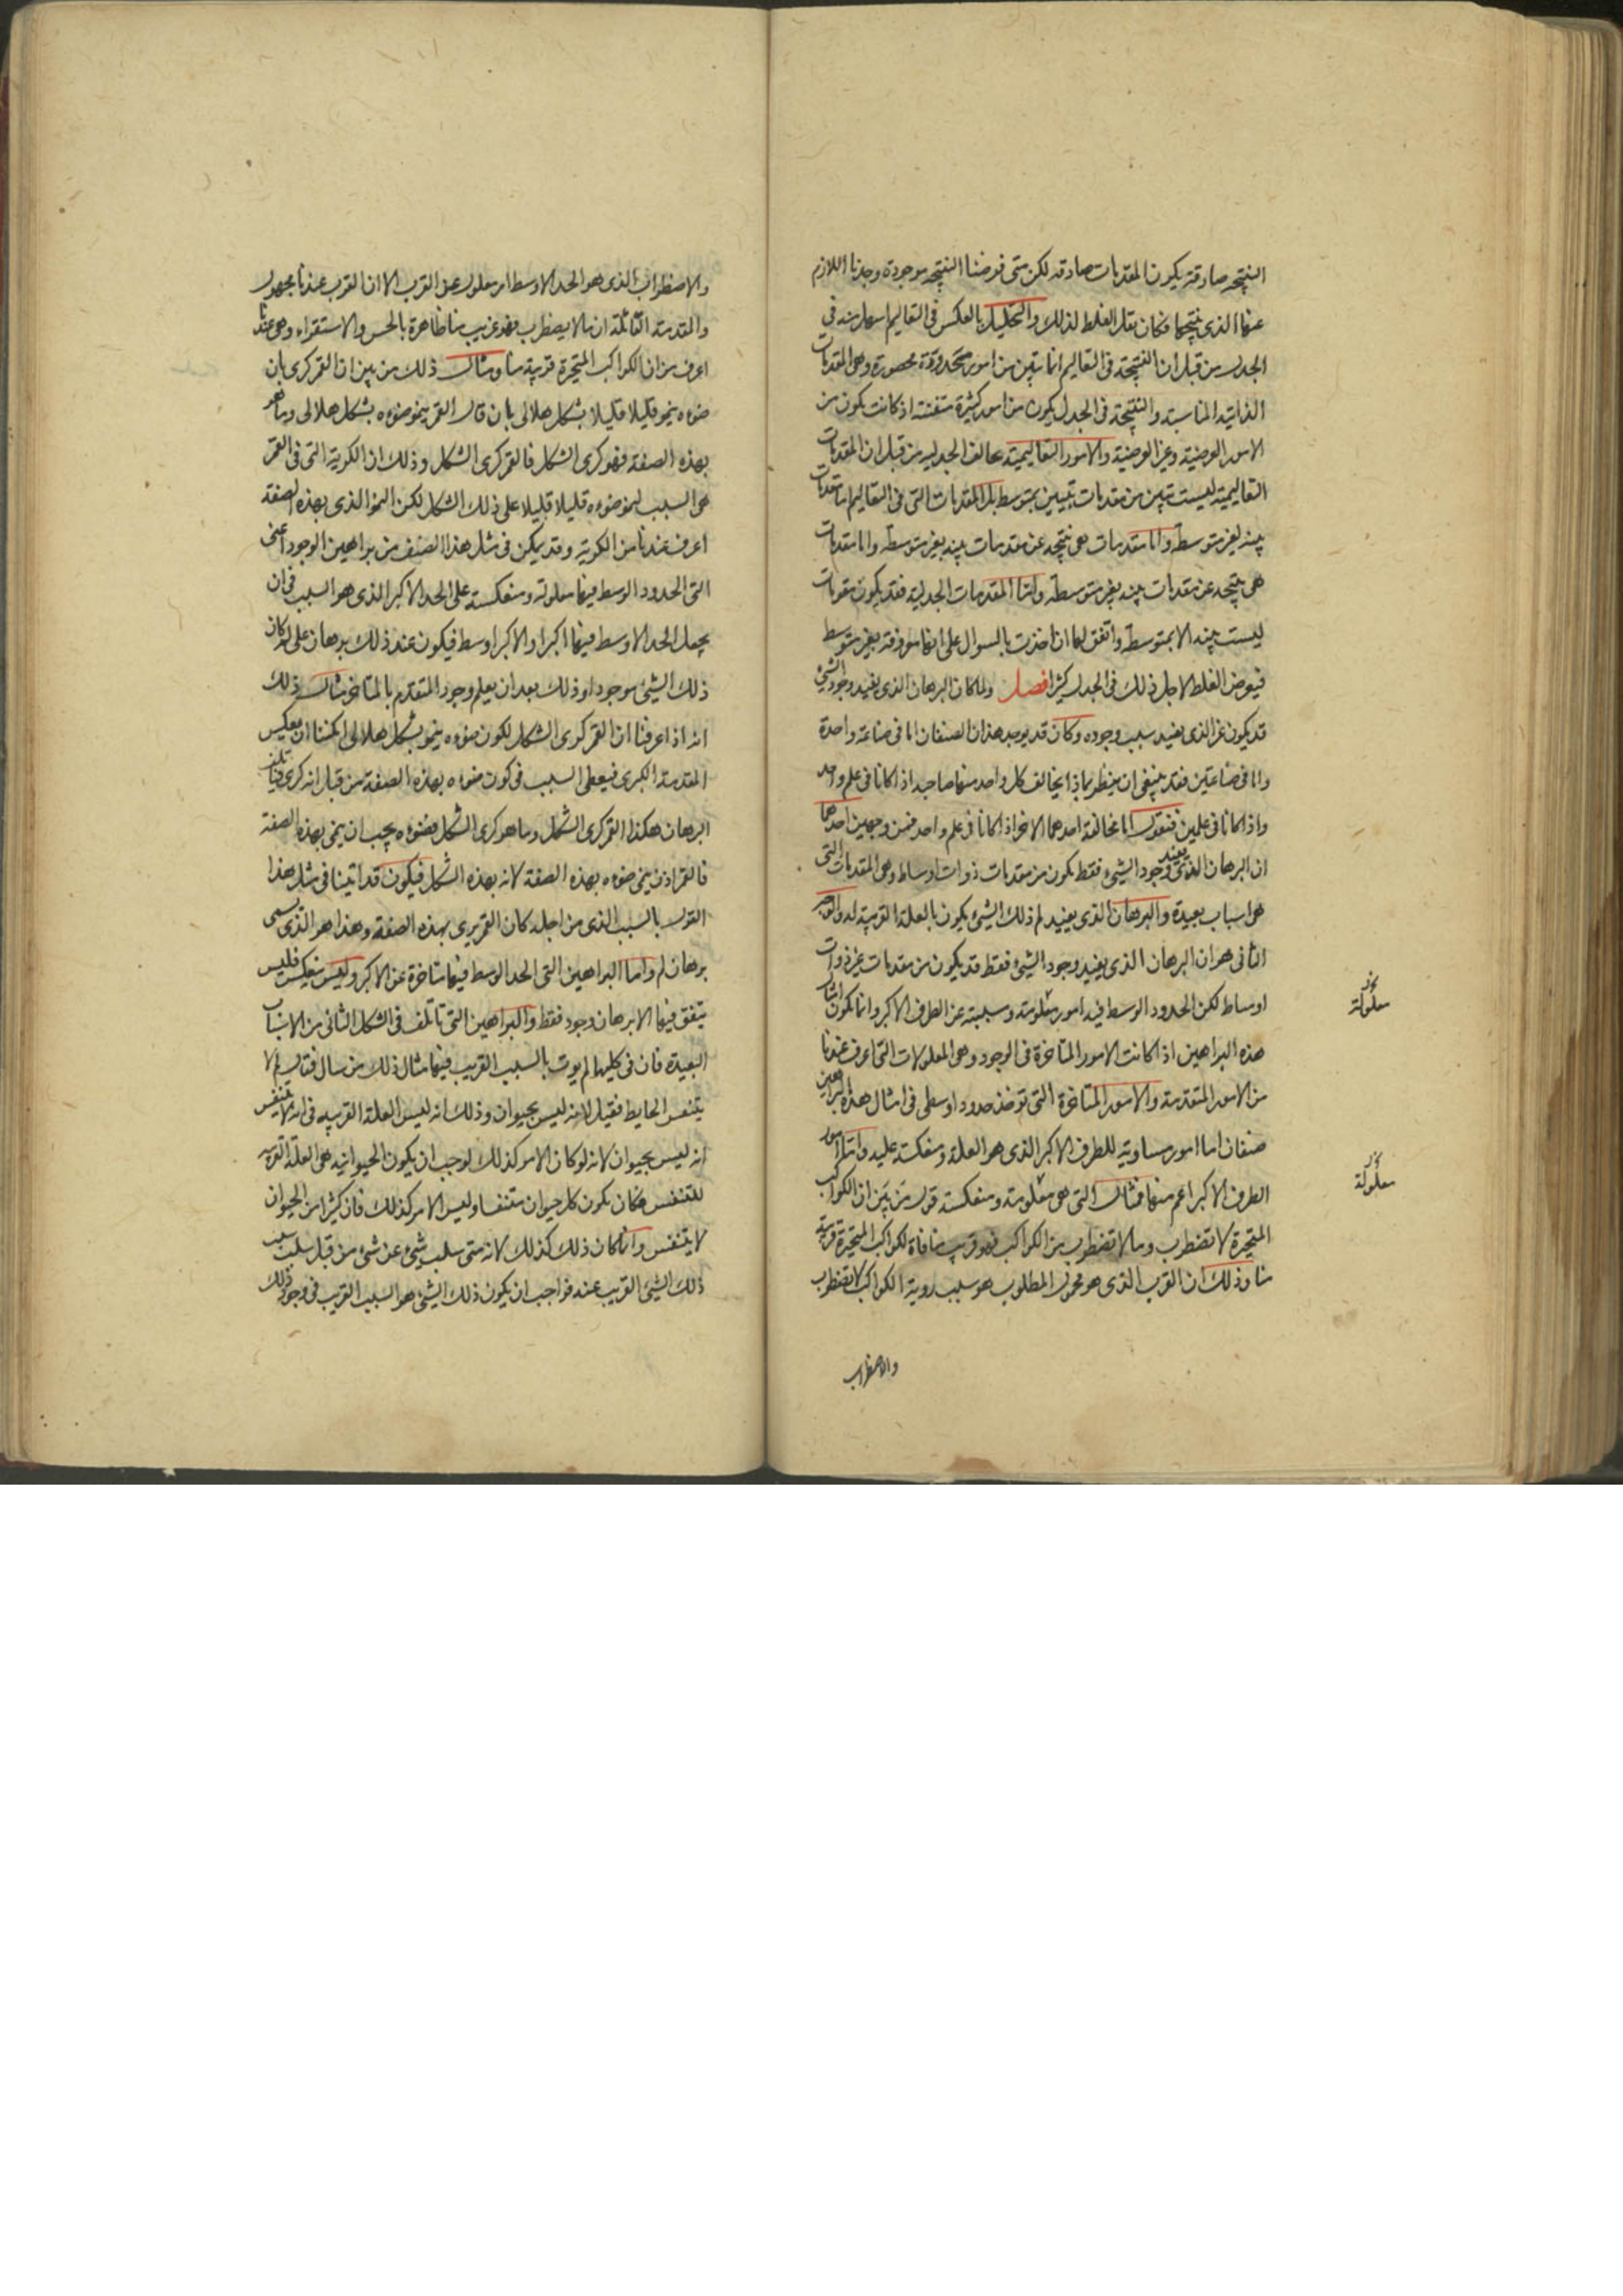 النتيجه صادقة يكون المقدمات صادقه لكن متى فرضنا النتيجه موجودة وجدنا اللازم
عنها الذى نتيجها فكان يقل الغلط لذلك والتحليل بالعكس فى التعاليم اسهل منه فى
الجدل من قبل ان النتيجة فى التعاليم انما تبين من امور محدودة محصورة وهى المقدمات
الذاتية المناسبة والنتيجة فى الجدل يكون من امور كثيرة متفننة اذ كانت يكون من
الامور العرضية وغير العرضية والامور التعاليمية تخالف الجدليه من قبل ان المقدمات
التعاليمية ليست تبين من مقدمات تبين بمتوسط بل المقدمات التى فى التعاليم اما مقدمات
بينه بغير متوسطة واما مقدمات هى نتيجه عن مقدمات بينه بغير متوسطة واما مقدمات
هى نتيجه عن مقدمات بينه بغير متوسطة واما المقدمات الجدلية فقد يكون مقدمات
ليست بينه الا بمتوسطة واتفق لها ان اخذت بالسوال على انها معروفة بغير متوسط
فيعرض الغلط لاجل ذلك فى الجدل كثيرا فصل ولما كان البرهان الذى يفيد وجود الشئ
قد يكون غير الذى يفيد سبب وجوده وكان قد يوجد هذان الصنفان اما فى صناعة واحدة
واما فى صناعتين فقد ينبغى ان ينظر بماذا يخالف كل واحد منهما صاحبه اذا كانا فى علم واحد
واذا كانا فى علمين فنقول اما مخالفة احدهما الاخر اذا كانا فى علم واحد فمن وجهين احدهما
ان البرهان الذى يفيد وجود الشئ فقط يكون من مقدمات ذوات اوساط وهى المقدمات التى
هى اسباب بعيدة والبرهان الذى يفيد لم ذلك الشئ يكون بالعلة القريبة له والوجه
الثانى هو ان البرهان الذى يفيد وجود الشئ فقط قد يكون من مقدمات غير ذوات
اوساط لكن الحدود الوسط فيه امور معلومة ومسببة عن الطرف الاكبر وانما يكون امثال
هذه البراهين اذا كانت الامور المتاخرة فى الوجود وهى المعلولات التى اعرف عندنا
من الامور المتقدمة والامور المتاخرة التى توخذ حدودا وسطى فى امثال هذه البراهين
صنفان اما امور مساوية للطرف الاكبر الذى هو العلة ومنعكسة عليه واما امور
الطرف الاكبر اعم منها فمثال التى هى معلومة ومنعكسة قول من بين ان الكواكب
المتحيرة لا تضطرب وما لا تضطرب من الكواكب فهو قريب منا فاذا الكواكب المتحيرة قريبة
منا وذلك ان القرب الذى هو محمول المطلوب هو سبب روية الكواكب لا تضطرب
معلولة
معلولة
والاضطراب
والاضطراب الذى هو الحد الاوسط امر معلول عن القرب الا ان القرب عندنا مجهول
والمقدمة القائلة ان ما لا يضطرب فهو قريب منا ظاهرة بالحس والاستقراء وهى عندنا
اعرف من ان الكواكب المتحيرة قريبة منا ومثال ذلك من بين ان القمر كرى بان
ضوءه ينمو قليلا قليلا بشكل هلالى بان قال القمر ينمو ضوءه بشكل هلالى وما هو
بهذه الصفة فهو كرى الشكل فالقمر كرى الشكل وذلك ان الكرية التى فى القمر
هى السبب لنمو ضوءه قليلا قليلا على ذلك الشكل لكن النمو الذى بهذه الصفة
اعرف عندنا من الكرية وقد يمكن فى مثل هذا الصنف من براهين الوجود اعنى
التى الحدود الوسط فيها معلولة ومنعكسة على الحد الاكبر الذى هو السبب فى ان
يجعل الحد الاوسط فيها اكبرا والاكبر اوسط فيكون عند ذلك برهان على لم كان
ذلك الشئ موجودا وذلك بعد ان يعلم وجود المتقدم بالمتاخر مثال ذلك
انه اذا عرفنا ان القمر كرى الشكل لكون ضوءه ينمو بشكل هلالى امكننا ان نعكس
المقدمة الكبرى فيعطى السبب فى كون ضوءه بهذه الصفة من قبل انه كرى
البرهان هكذا القمر كرى الشكل وما هو كرى الشكل فضوءه يجب ان ينمى بهذه الصفة
فالقمر اذن ينمى ضوءه بهذه الصفة لانه بهذه الشكل فيكون قد اتينا فى مثل هذا
القول بالسبب الذى من اجله كان القمر يرى بهذه الصفة وهذا هو الذى يسمى
برهان لم واما البراهين التى الحد الوسط فيها متاخرة عن الاكبر وليس منعكس فليس
يتفق فيها الا برهان وجود فقط والبراهين التى تاتلف فى الشكل الثانى من الاسباب
البعيدة فان فى كليهما لم يوت بالسبب القريب فيها مثال ذلك من سال فقال لم لا
يتنفس الحايط فقيل لانه ليس بحيوان وذلك انه ليس العلة القريبه فى انه لا يتنفس
انه ليس بحيوان لانه لو كان الامر كذلك لوجب ان يكون الحيوانيه هى العلة القريبه
للتنفس فكان يكون كل حيوان متنفسا وليس الامر كذلك فان كثيرا من الحيوان
لا يتنفس وانما كان ذلك كذلك لانه متى سلب شئ عن شئ من قبل سلب سبب
ذلك الشئ القريب عنه فواجب ان يكون ذلك الشئ هو السبب القريب فى وجود ذلك